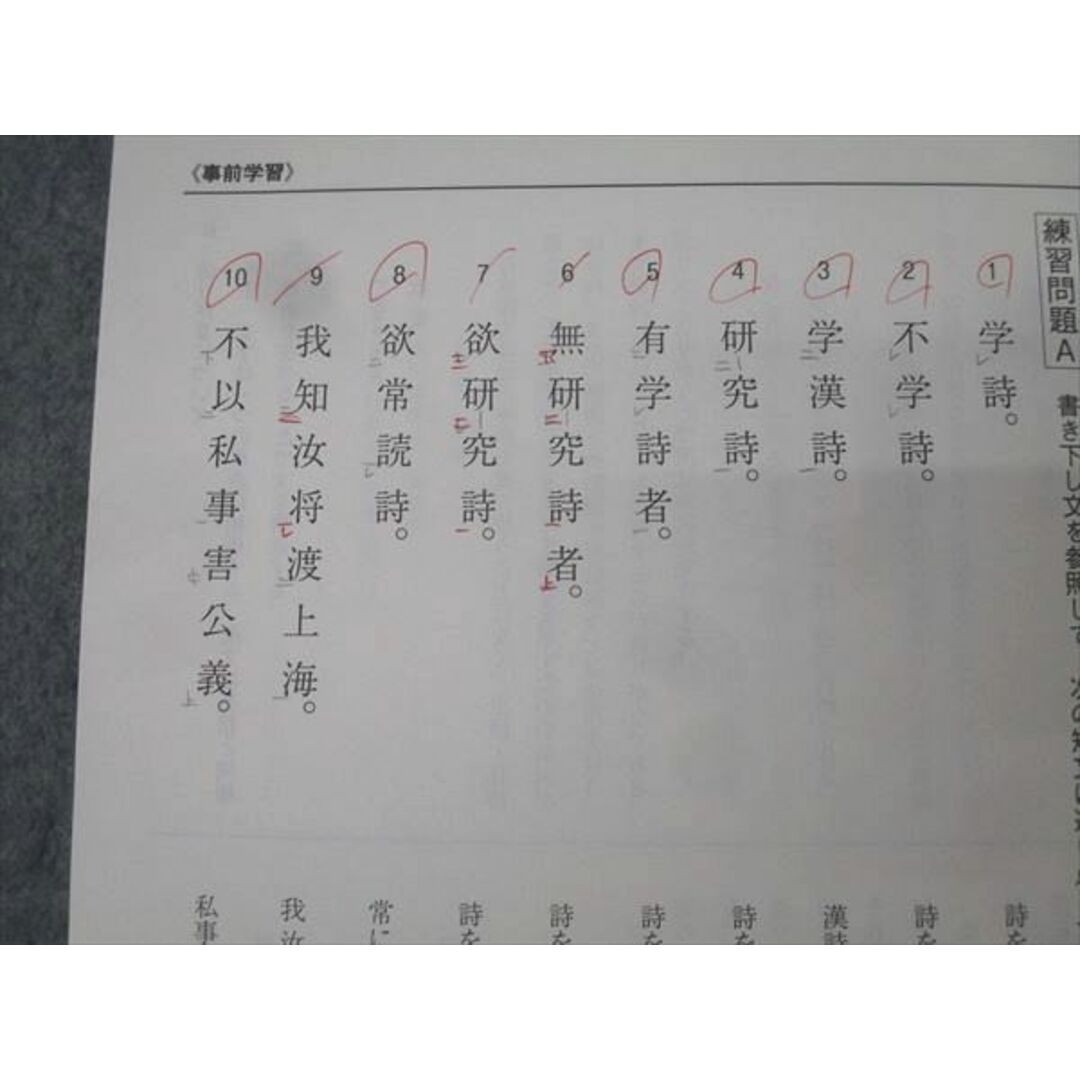 《事前学習》
練習問題A
書き下し文を参照して、次の短文に
1 学レ詩。
2 不レ学レ詩。
3 学二漢詩一。
4 研二-究詩一。
5 有二学レ詩者一。
6 無研究詩者。
7 欲研究詩。
8 欲二常読一レ詩。
9 我知汝将渡上海。
10 不下以二私事一害中公義上。
詩を
詩を
漢詩
詩を
詩を
詩を
詩を
常に
我汝
私事